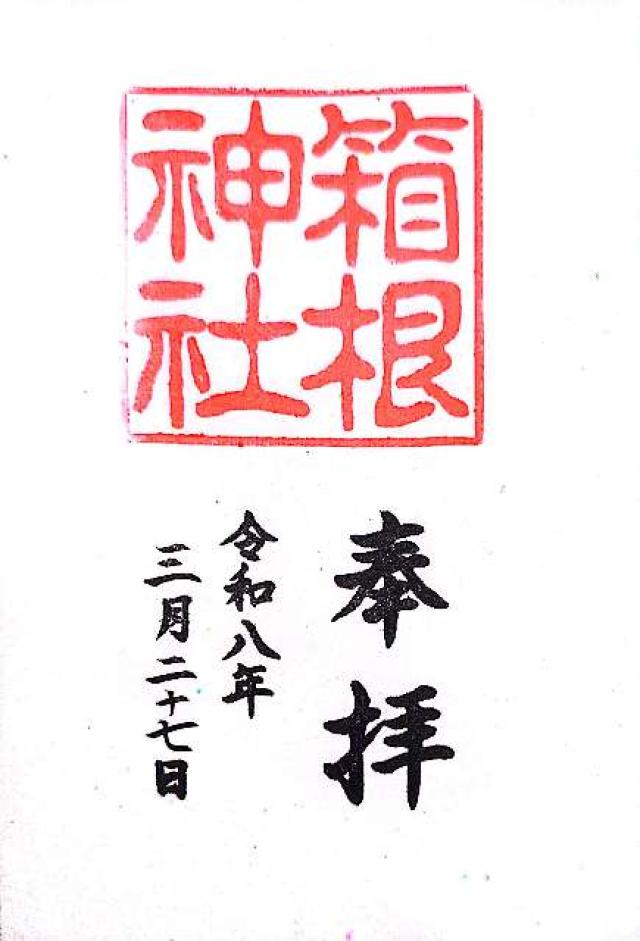 箱根
神社
奉拝
令和八年
三月二十七日